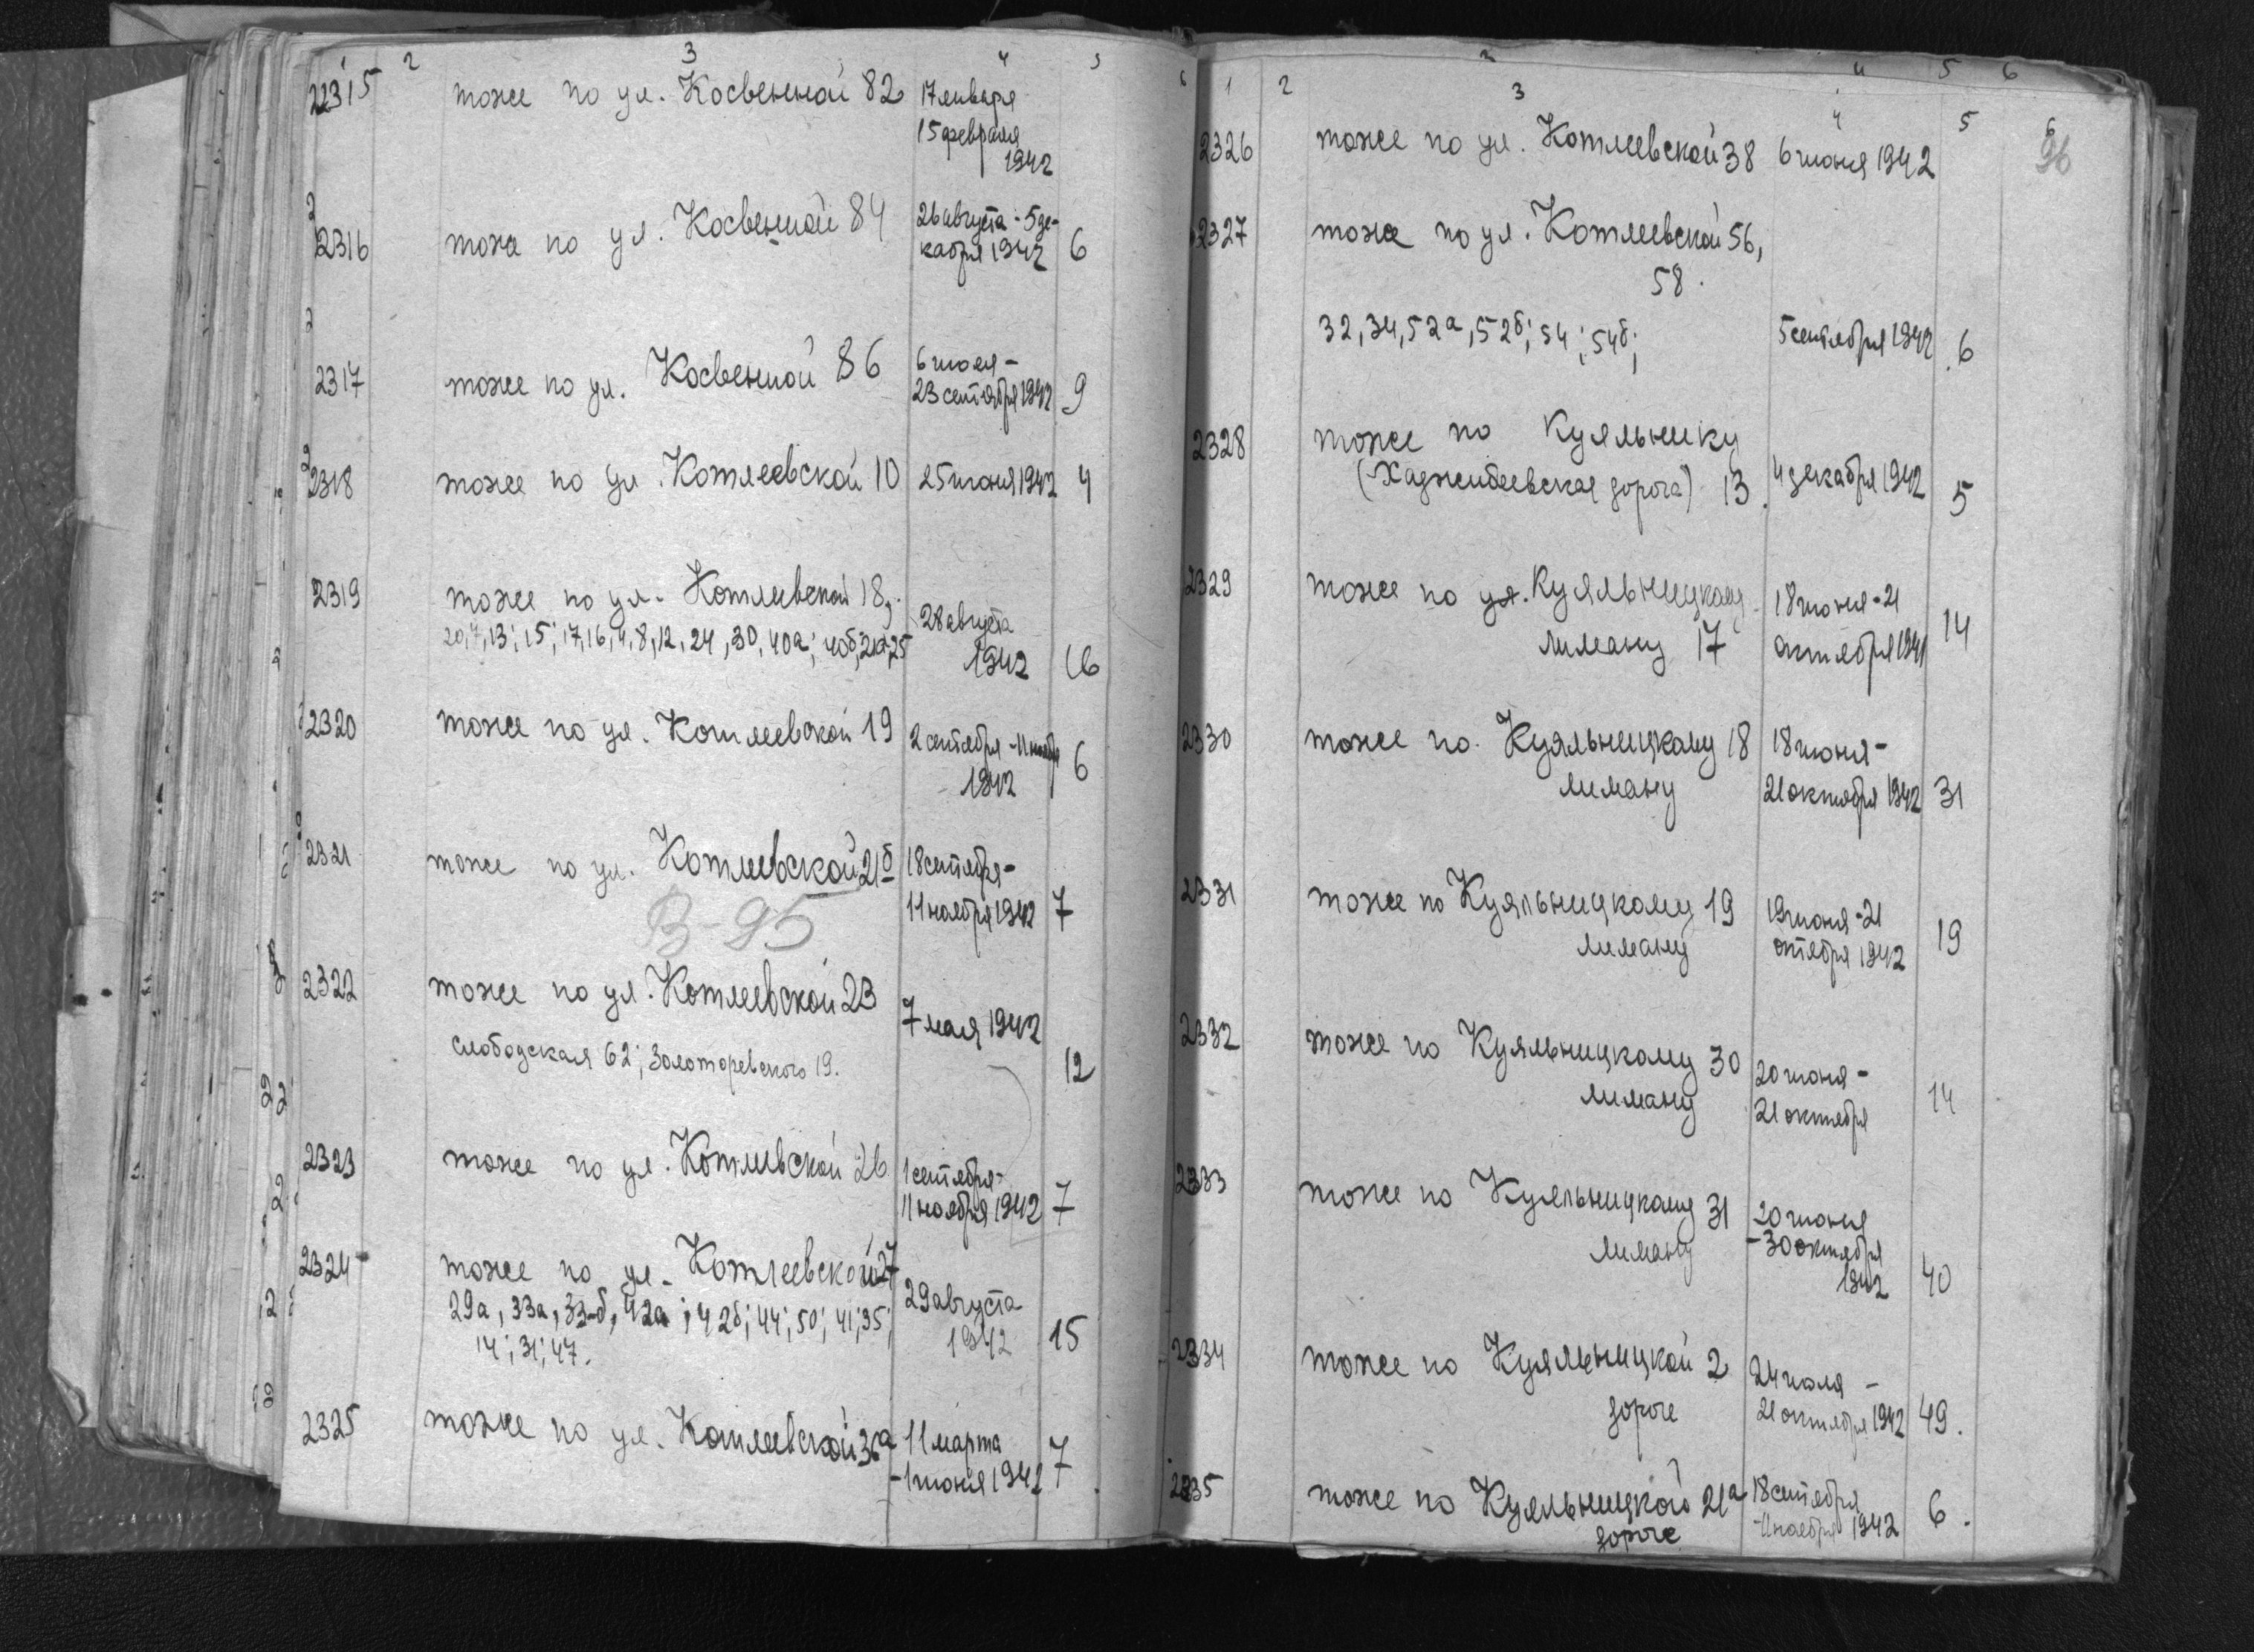 1 2 3 4 5 6
2315 тоже по ул. Косвенной 82 17 января
15 февраля
1942
2316 тоже по ул. Косвенной 84 26 августа - 5 де-
кабря 1942 6
2317 тоже по ул. Косвенной 86 6 июля -
23 сентября 1942 9
2318 тоже по ул. Котлеевской 10 25 июня 1942 4
2319 тоже по ул. Котлевской 18,
20, 7, 13; 15; 17, 16, 4, 8, 12, 24, 30, 40а; 40б; 21а, 25
28 августа
1942 16
2320 тоже по ул. Котлеевской 19 2 сентября - 11 ноября
1942 6
2321 тоже по ул. Котлеевской 21б 18 сентября -
11 ноября 1942 7
В-95
2322 тоже по ул. Котлеевской 23
7 мая 1942
слободская 62; Золоторевского 19. 12
2323 тоже по ул. Котлевской 26 1 сентября -
11 ноября 1942 7
2324 тоже по ул. Котлеевской 27
29а, 33а, 33-б, 42а; 42б; 44; 50; 41; 35; 29 августа
14; 31; 47. 1942 15
2325 тоже по ул. Котлеевской 36а 11 марта
- 1 июня 1942 7
3 4 5 6
1 2 3 4 5 6
2326 тоже по ул. Котлеевской 38 6 июня 1942
96
2327 тоже по ул. Котлеевской 56,
58.
32, 34, 52а, 52б; 54; 54б; 5 сентября 1942 6
2328 тоже по Куяльнику
(Хаджибеевская дорога) 13. 4 декабря 1942 5
2329 тоже по ул. Куяльницкому 18 июня - 21
лиману 17 октября 1941 14
2330 тоже по Куяльницкому 18 18 июня -
лиману 21 октября 1942 31
2331 тоже по Куяльницкому 19 19 июня - 21
лиману октября 1942 19
2332 тоже по Куяльницкому 30 20 июня -
лиману 21 октября 14
2333 тоже по Куяльницкому 31 20 июня
лиману - 30 октября
1942 40
2334 тоже по Куяльницкой 2 24 июля -
дороге 21 октября 1942 49.
2335 тоже по Куяльницкой 21а 18 сентября
дороге - 11 ноября 1942 6.